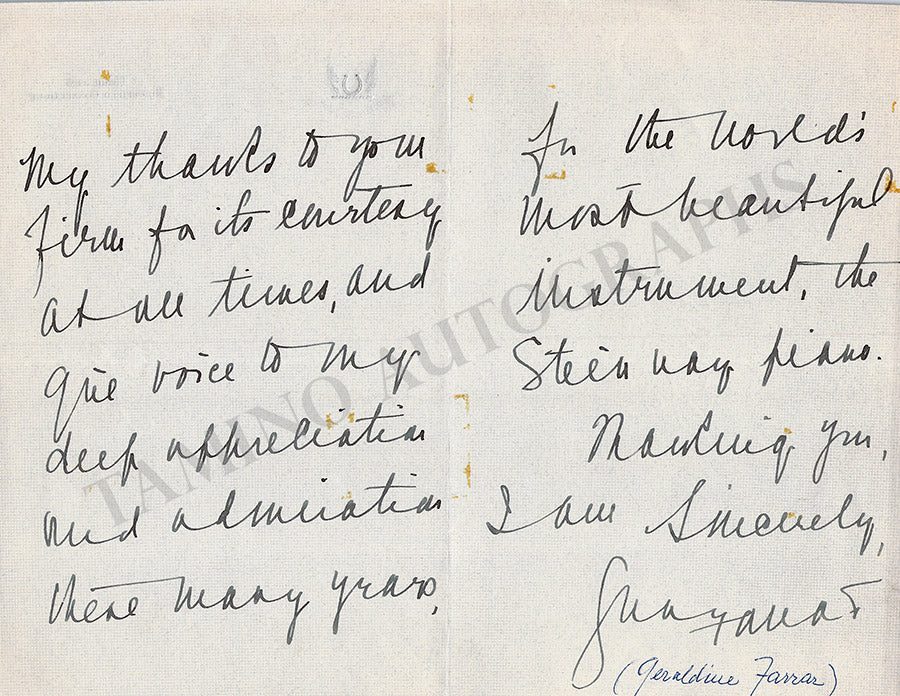 My thanks to your
firm for its courtesy
at all times, and
give voice to my
deep appreciation
and admiration
these many years,
for the world's
most beautiful
instrument, the
Steinway piano.
Thanking you,
I am Sincerely,
Farrar
(Geraldine Farrar)
TAMINO AUTOGRAPHS